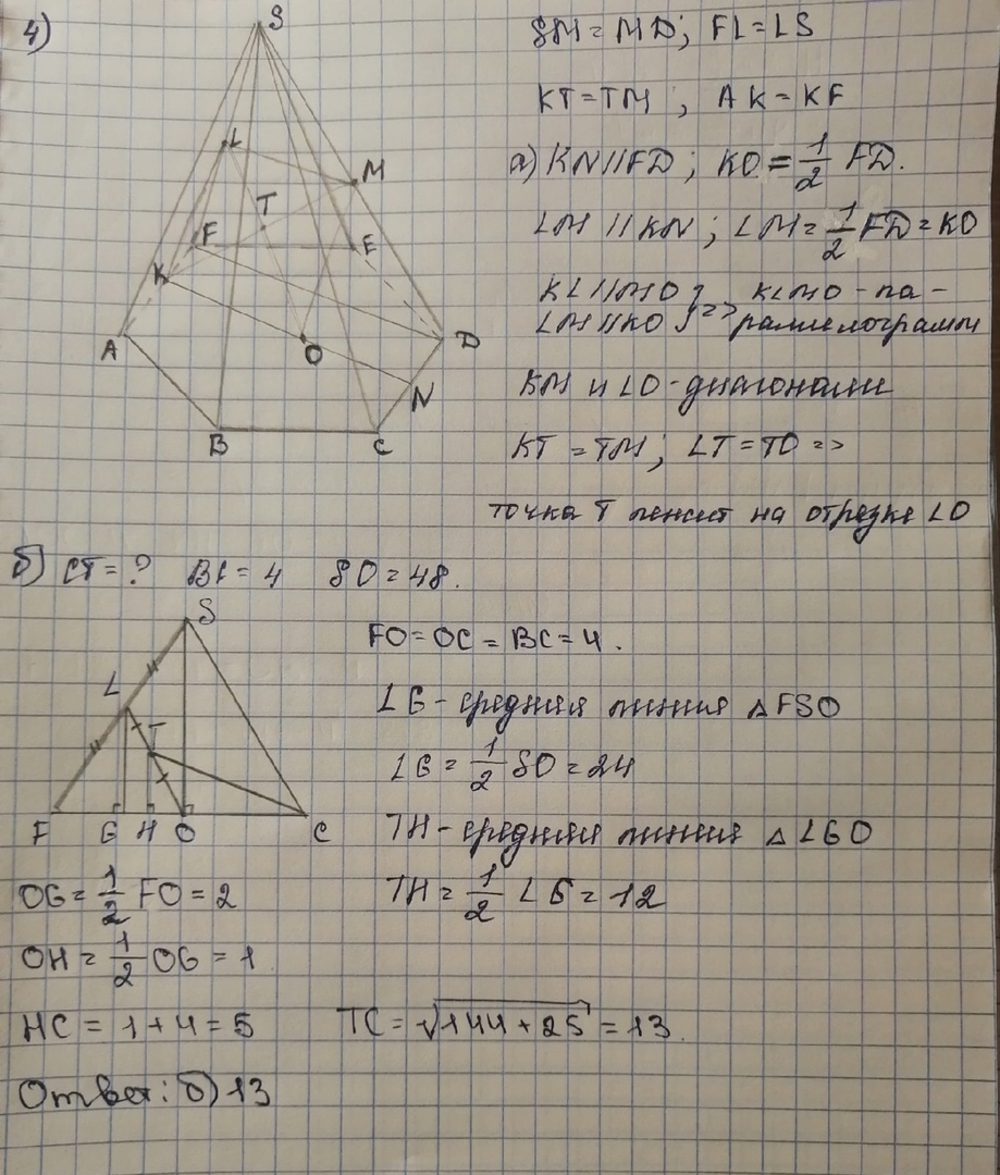 4)
S
L
M
T
F
E
K
A
O
D
N
B
C
SM = MD; FL = LS
KT = TM, AK = KF
а) KN//FD; KO = 1/2 FD.
LM // KN; LM = 1/2 FD = KO
KL//MO } => KLMO - па-
LM//KO } раллелограмм
KM и LO - диагонали
KT = TM; LT = TO =>
точка T лежит на отрезке LO
б) CT = ? BC = 4 SO = 48.
S
L
T
F G H O C
FO = OC = BC = 4.
LG - средняя линия △FSO
LG = 1/2 SO = 24
TH - средняя линия △LGO
TH = 1/2 LG = 12
OG = 1/2 FO = 2
OH = 1/2 OG = 1
HC = 1 + 4 = 5 TC = √144 + 25 = 13.
Ответ: б) 13